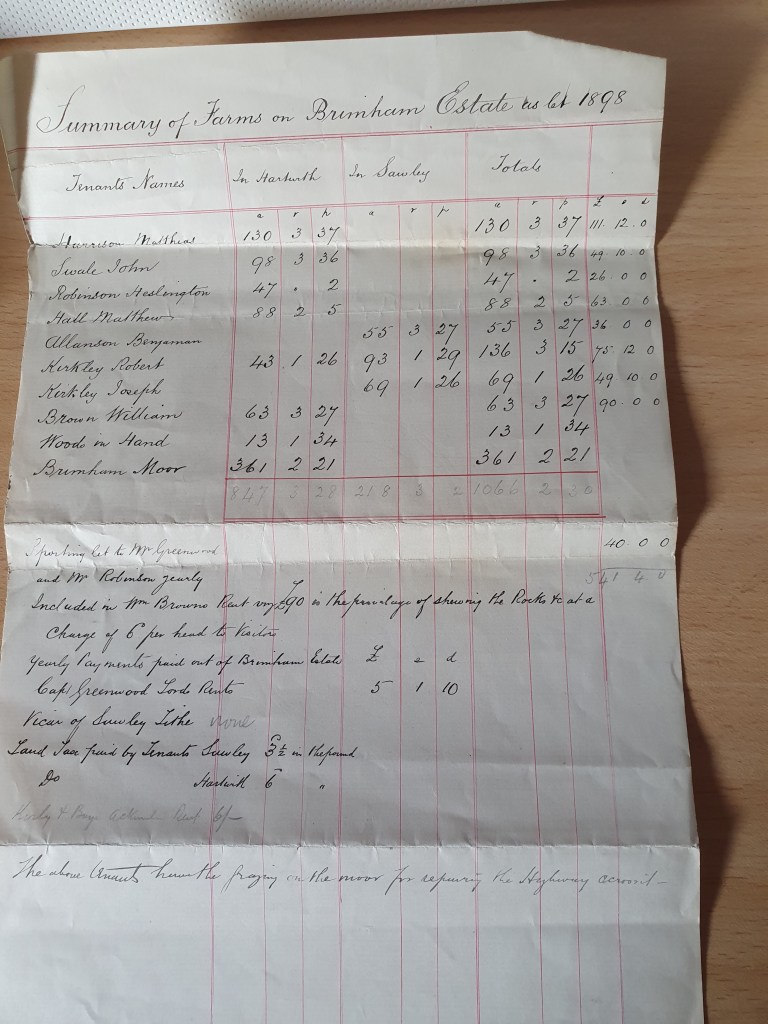 Summary of Farms on Brimham Estate as let 1898
Tenants Names In Hartwith In Sawley Totals
a r p a r p a r p £ s d
Harrison Matthias 130 3 37 130 3 37 111. 12. 0
Swale John 98 3 36 98 3 36 49 10 0
Robinson Heslington 47 . 2 47 . 2 26 0 0
Hall Matthew 88 2 5 88 2 5 63 0 0
Allanson Benjaman 55 3 27 55 3 27 36 0 0
Kirkley Robert 43 1 26 93 1 29 136 3 15 75 12 0
Kirkley Joseph 69 1 26 69 1 26 49 10 0
Brown William 63 3 27 63 3 27 90 0 0
Woods in Hand 13 1 34 13 1 34
Brimham Moor 361 2 21 361 2 21
847 3 28 218 3 2 1066 2 30
Sporting let to Mr Greenwood 40 0 0
and Mr Robinson yearly 541 4 0
Included in Wm Browns Rent £90 is the privilage of shewing the Rocks &c at a
Charge of 6 per head to Visitors
Yearly Payments paid out of Brimham Estate £ s d
Capt Greenwood Lords Rents 5 1 10
Vicar of Sawley Tithe none
Land Tax paid by Tenants Sawley 3½ in the pound
Do Hartwith 6 "
Rent 6/-
The above tenants have the grazing on the moor for repairing the Highway across it